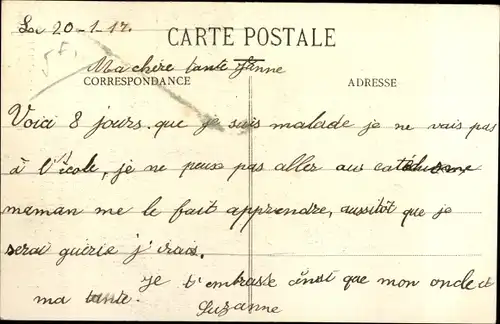 Le 20-1-17.
CARTE POSTALE
Ma chère tante Jeanne
CORRESPONDANCE
ADRESSE
Voici 8 jours que je suis malade je ne vais pas
à l'école, je ne peux pas aller aus catéchisme
maman me le fait apprendre, aussitôt que je
serai guérie j'irais.
Je t'embrasse ainsi que mon oncle et
ma tante.
Suzanne